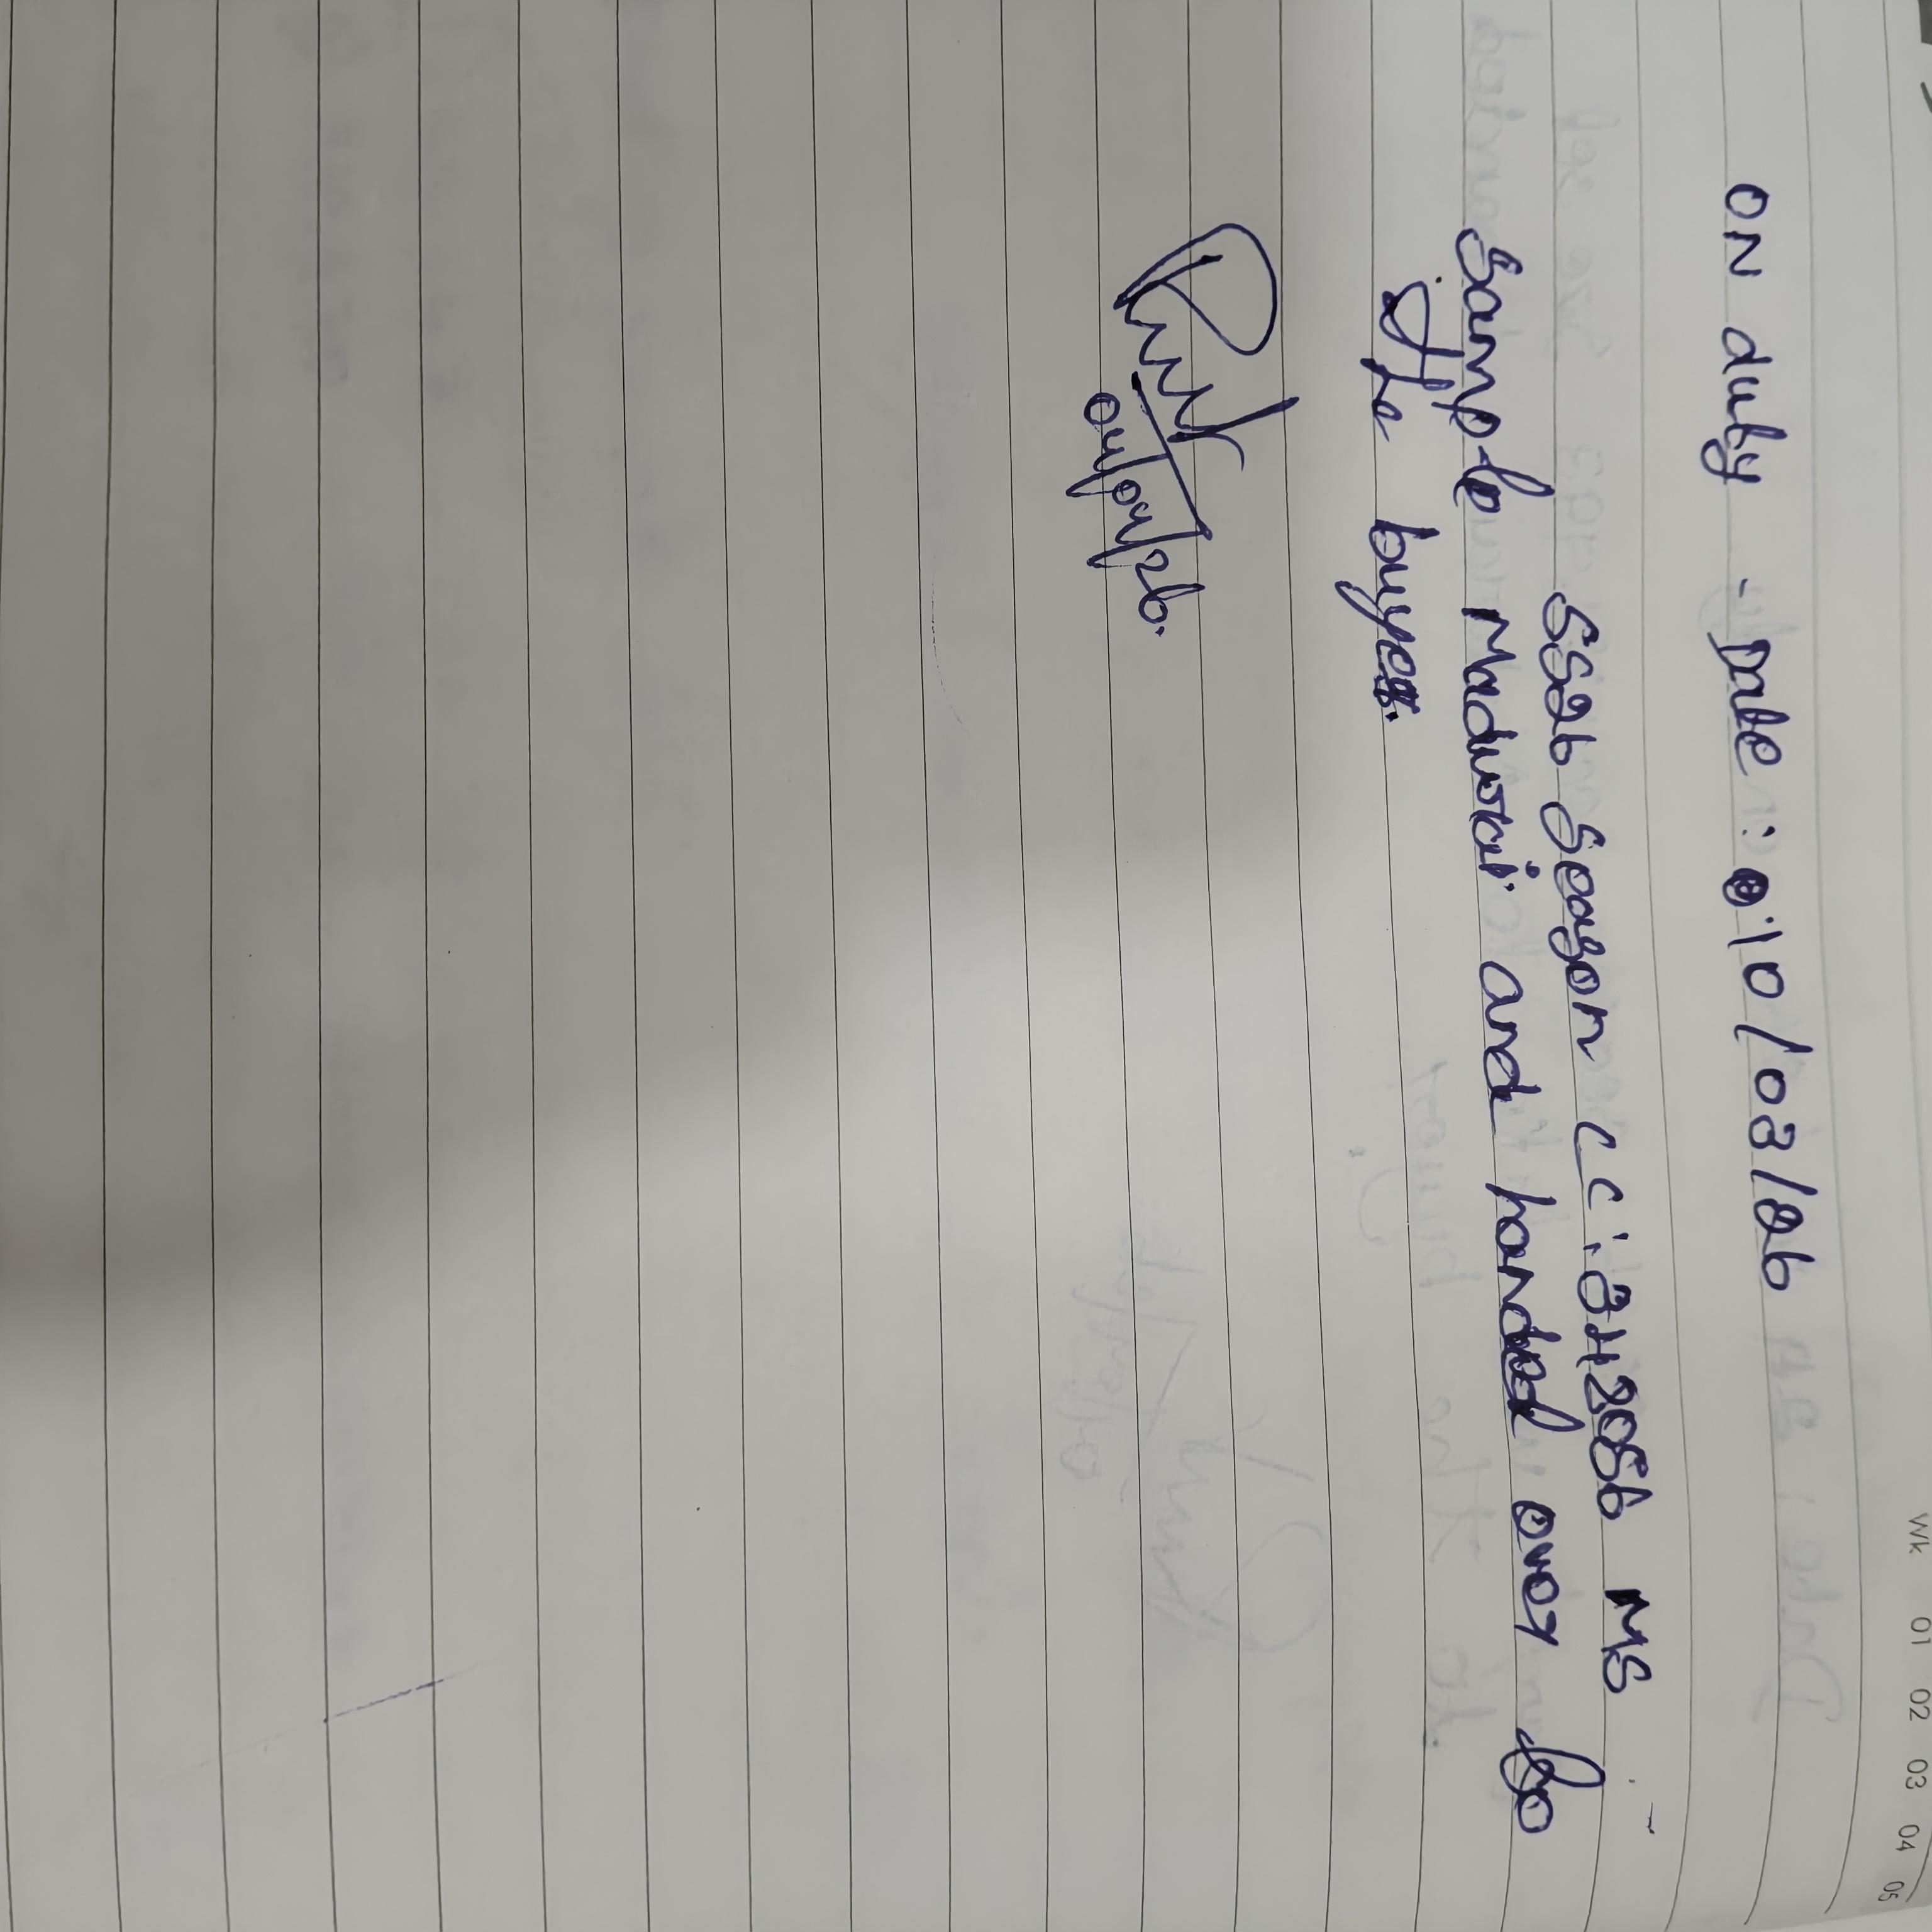 Wk 01 02 03 04 05
ON duty - Date: 10/03/26
SS26 Season CC: 342056 MS
Sample Madurai and handed over to
the buyer.
04/04/26.